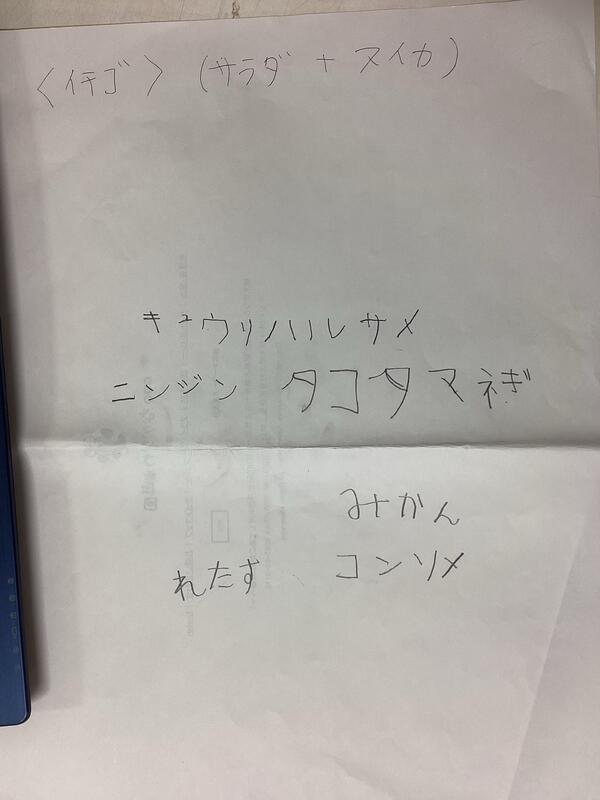 〈イチゴ〉 (サラダ + スイカ)
キュウリハルサメ
ニンジン タコタマネギ
みかん
れたす コンソメ